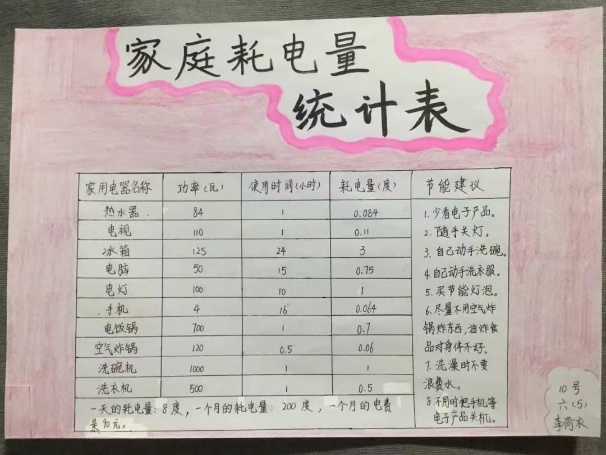 家庭耗电量
统计表
家用电器名称 功率(瓦) 使用时间(小时) 耗电量(度) 节能建议
热水器 84 1 0.084
电视 110 1 0.11
冰箱 125 24 3
电脑 50 15 0.75
电灯 100 10 1
手机 4 16 0.064
电饭锅 700 1 0.7
空气炸锅 120 0.5 0.06
洗碗机 1000 1 1
洗衣机 500 1 0.5
一天的耗电量:8度,一个月的耗电量:200度,一个月的电费
是90元。
1.少看电子产品。
2.随手关灯。
3.自己动手洗碗。
4.自己动手洗衣服。
5.买节能灯泡。
6.尽量不用空气炸
锅炸东西,油炸食
品对身体不好。
7.洗澡时不要
浪费水。
8.不用时把手机等
电子产品关机。
10号
六(5)
李荷衣